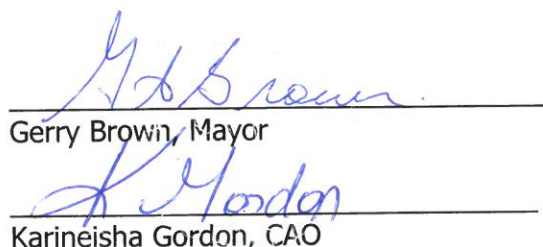 G A Brown
Gerry Brown, Mayor
K Gordon
Karineisha Gordon, CAO